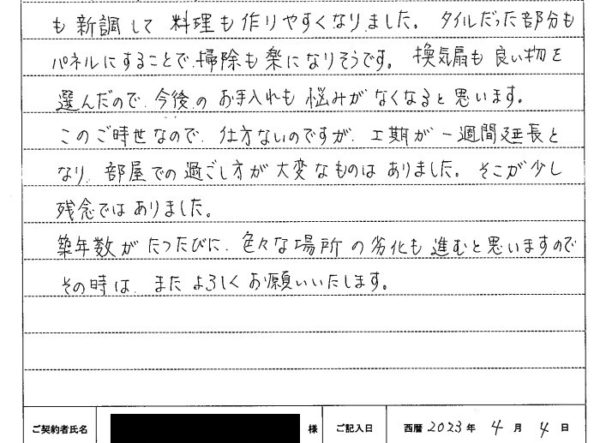 も新調して料理も作りやすくなりました。タイルだった部分も
パネルにすることで、掃除も楽になりそうです。換気扇も良い物を
選んだので、今後のお手入れも悩みがなくなると思います。
このご時世なので、仕方ないのですが、工期が一週間延長と
なり、部屋での過ごし方が大変なものはありました。そこが少し
残念ではありました。
築年数がたつたびに、色々な場所の劣化も進むと思いますので
その時は、またよろしくお願いいたします。
ご契約者氏名 様 ご記入日 西暦 2023 年 4 月 4 日